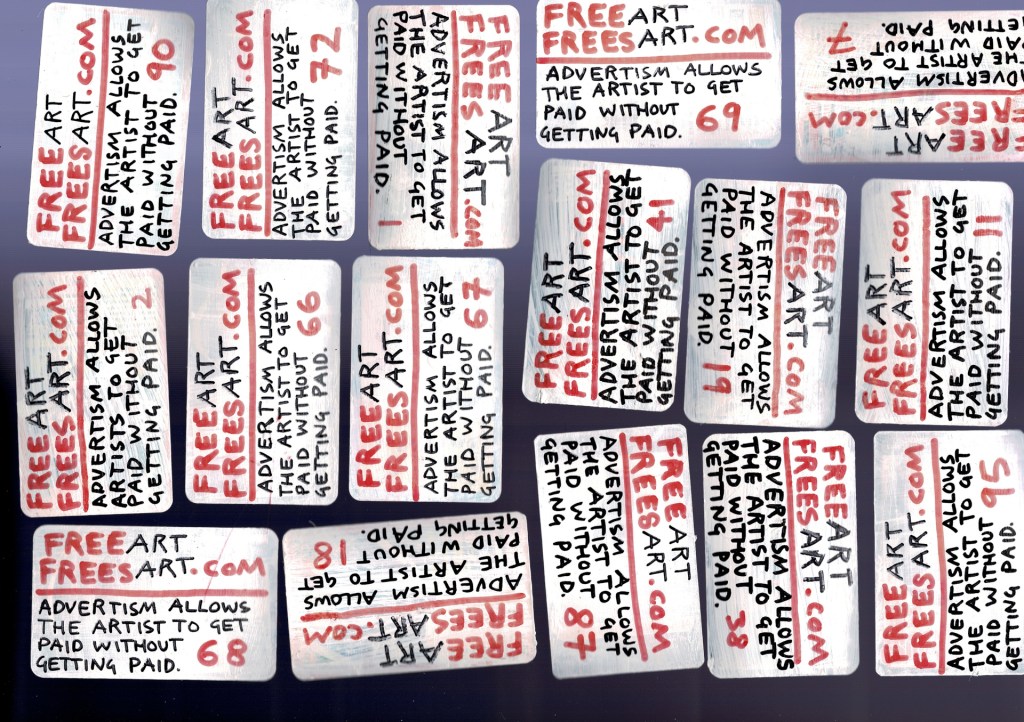 FREEART
FREESART.COM
ADVERTISM ALLOWS
THE ARTIST TO GET
PAID WITHOUT
GETTING PAID. 90
FREEART
FREESART.COM
ADVERTISM ALLOWS
THE ARTIST TO GET
PAID WITHOUT
GETTING PAID. 72
FREEART
FREESART.COM
ADVERTISM ALLOWS
THE ARTIST TO GET
PAID WITHOUT
GETTING PAID. 1
FREEART
FREESART.COM
ADVERTISM ALLOWS
THE ARTIST TO GET
PAID WITHOUT
GETTING PAID. 69
FREEART
FREESART.COM
ADVERTISM ALLOWS
THE ARTIST TO GET
PAID WITHOUT
GETTING PAID. 7
FREEART
FREESART.COM
ADVERTISM ALLOWS
THE ARTIST TO GET
PAID WITHOUT
GETTING PAID. 41
FREEART
FREESART.COM
ADVERTISM ALLOWS
THE ARTIST TO GET
PAID WITHOUT
GETTING PAID. 19
FREEART
FREESART.COM
ADVERTISM ALLOWS
THE ARTIST TO GET
PAID WITHOUT
GETTING PAID. 11
FREEART
FREESART.COM
ADVERTISM ALLOWS
ARTISTS TO GET
PAID WITHOUT
GETTING PAID. 2
FREEART
FREESART.COM
ADVERTISM ALLOWS
THE ARTIST TO GET
PAID WITHOUT
GETTING PAID. 66
FREEART
FREESART.COM
ADVERTISM ALLOWS
THE ARTIST TO GET
PAID WITHOUT
GETTING PAID. 67
FREEART
FREESART.COM
ADVERTISM ALLOWS
THE ARTIST TO GET
PAID WITHOUT
GETTING PAID. 87
FREEART
FREESART.COM
ADVERTISM ALLOWS
THE ARTIST TO GET
PAID WITHOUT
GETTING PAID. 38
FREEART
FREESART.COM
ADVERTISM ALLOWS
THE ARTIST TO GET
PAID WITHOUT
GETTING PAID. 95
FREEART
FREESART.COM
ADVERTISM ALLOWS
THE ARTIST TO GET
PAID WITHOUT
GETTING PAID. 68
FREEART
FREESART.COM
ADVERTISM ALLOWS
THE ARTIST TO GET
PAID WITHOUT
GETTING PAID. 18